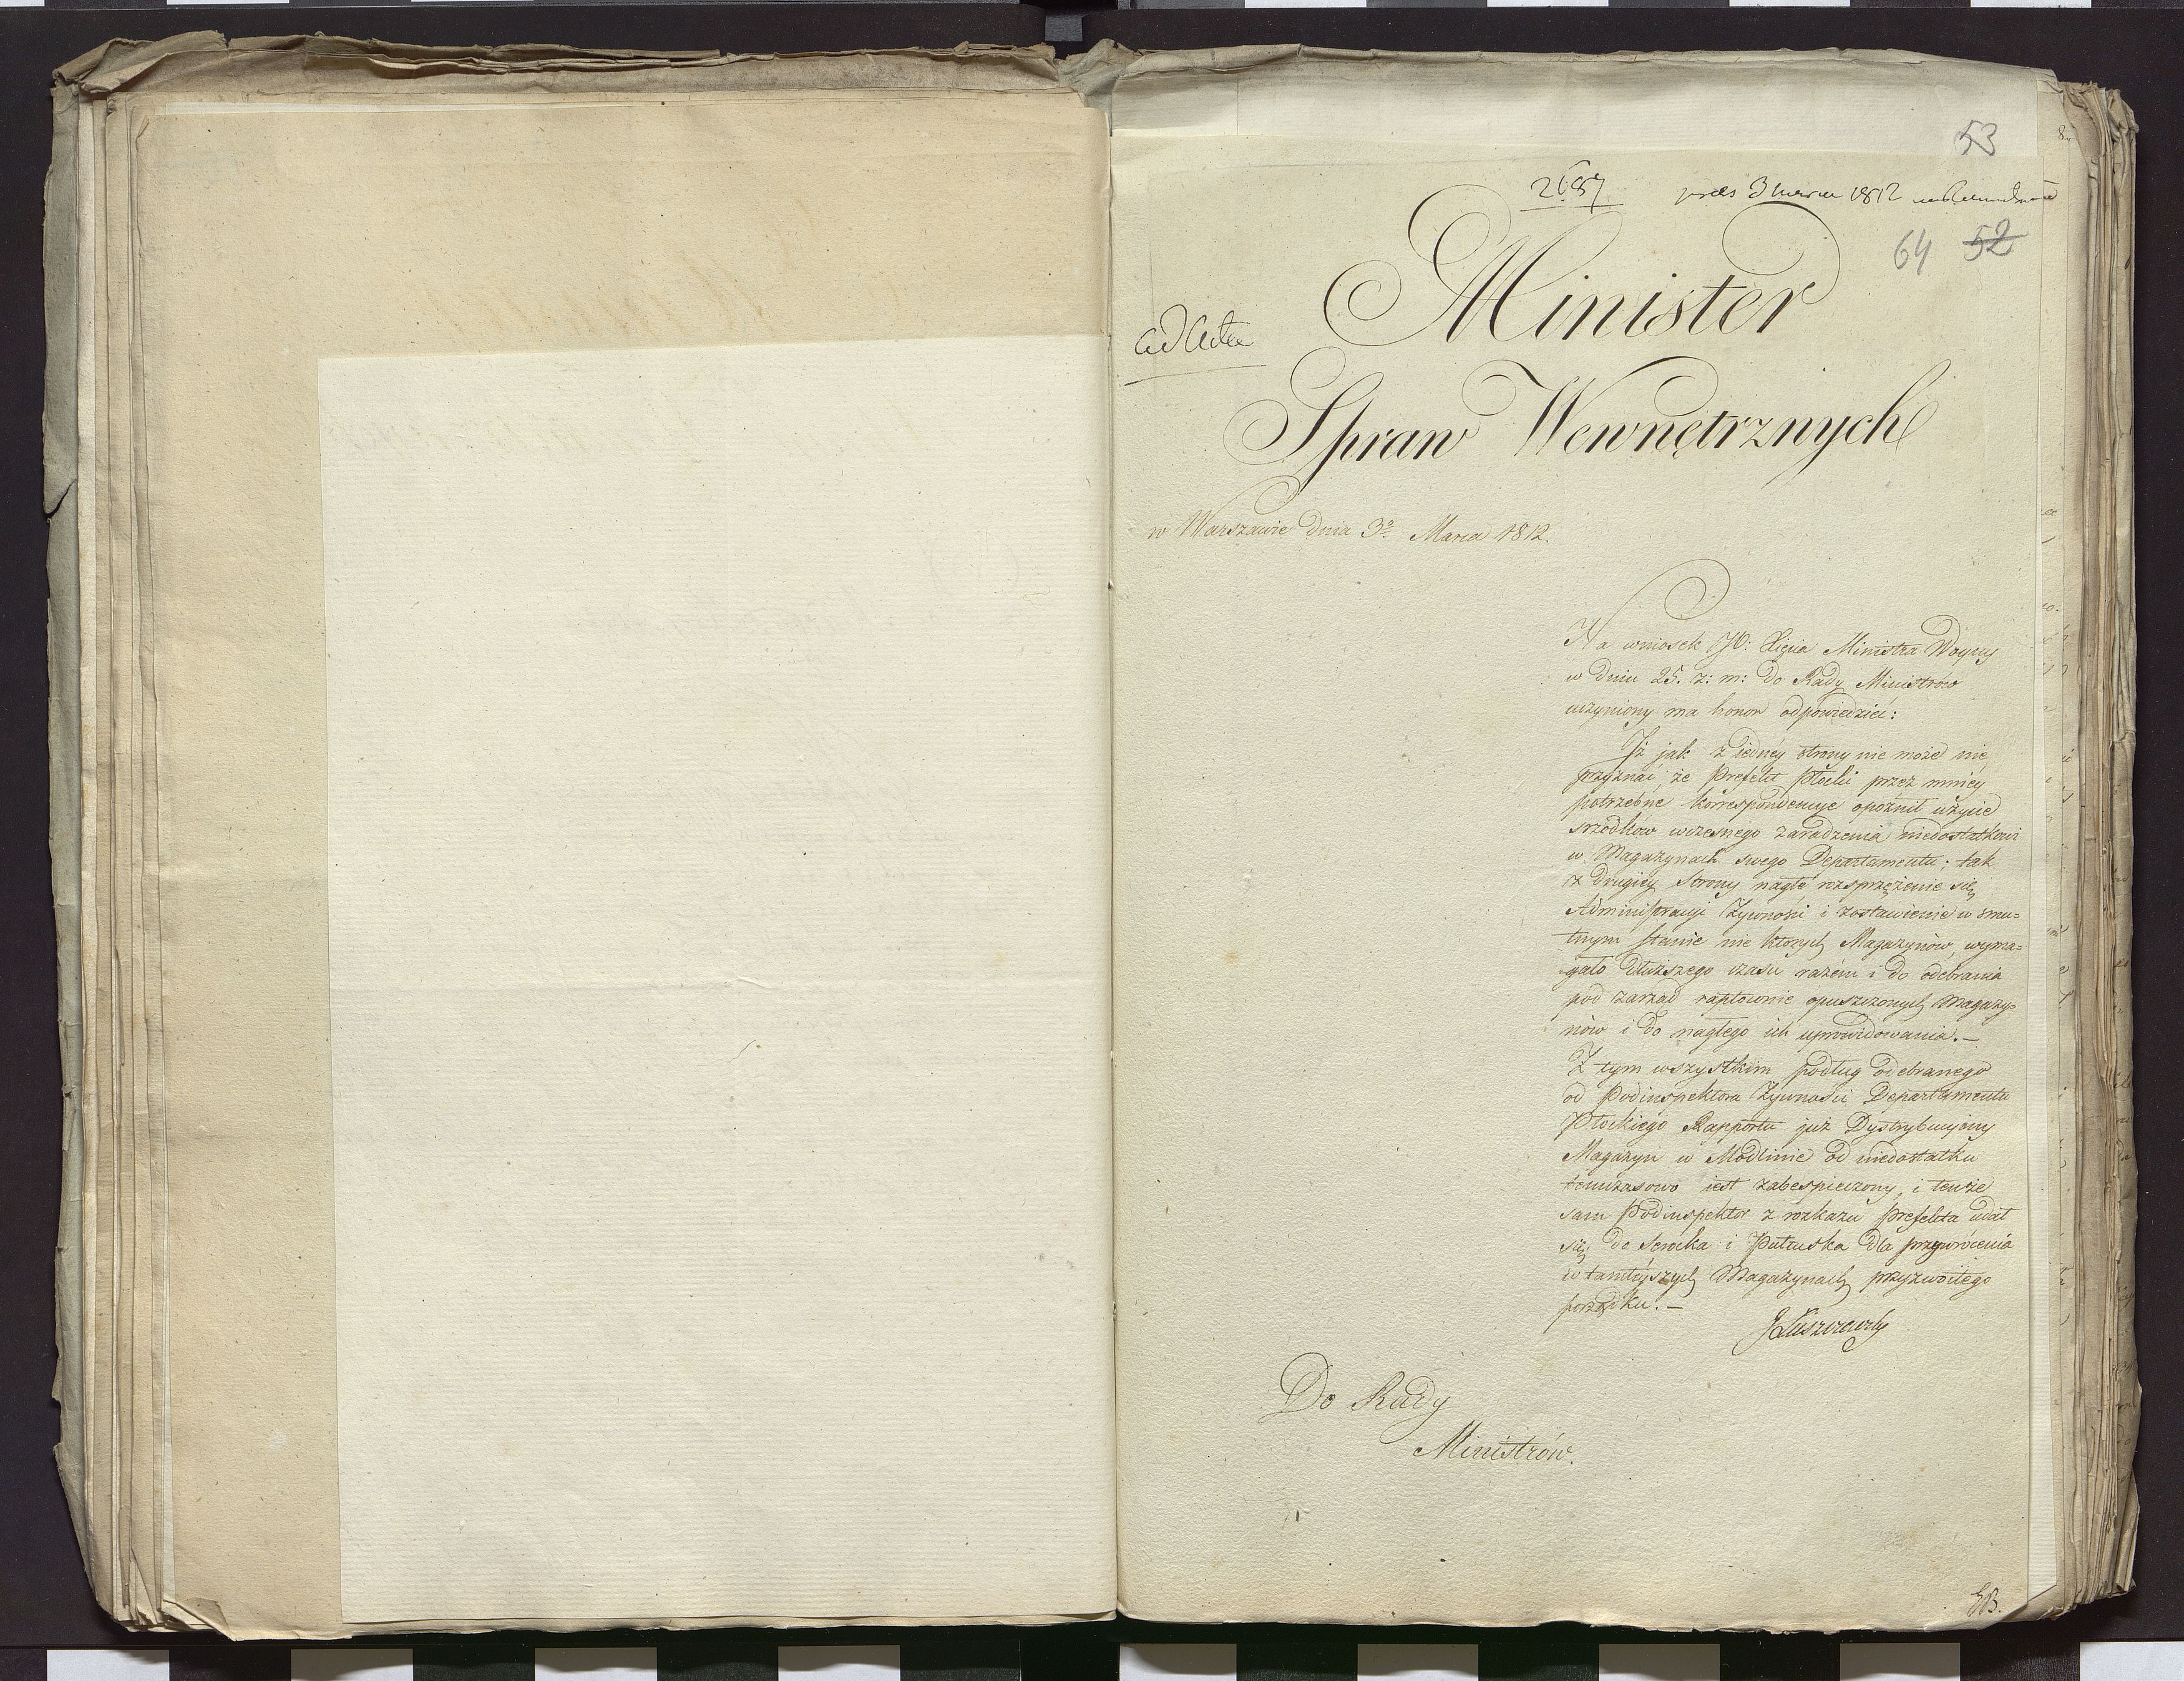 53
2687 præs 3 Marca 1812
64 52
ad Acta
Minister
Spraw Wewnętrznych
w Warszawie dnia 3º Marca 1812.
Na wniosek JO: Xięcia Ministra Woyny
w dniu 25. z: m: do Rady Ministrów
uczyniony ma honor odpowiedzieć:
Iż jak z iedney strony nie może nie
przyznać że Prefekt Płocki przez mniey
potrzebne korrespondencye opoźnił użycie
srzodków wczesnego zaradzenia niedostatkowi
w Magazynach swego Departamentu; tak
z drugiey strony nagłe rozsprzężenie się
Administracyi Żywności i zostawienie w smu=
tnym stanie nie ktorych Magazynów, wyma=
gało dłuższego czasu razem i do odebrania
pod zarząd raptownie opuszczonych Magazy=
nów i do nagłego ich uprowidowania.—
Z tym wszystkim podług odebranego
od Podinspektora Żywności Departamentu
Płockiego Rapportu już Dystrybucyiny
Magazyn w Modlinie od niedostatku
temczasowo iest zabespieczony, i tenże
sam Podinspektor z rozkazu Prefekta udał
się do Serocka i Pułtuska dla przywrócenia
w tamteyszych Magazynach przyzwoitego
porządku.—
JŁuszczewsky
Do Rady
Ministrów.